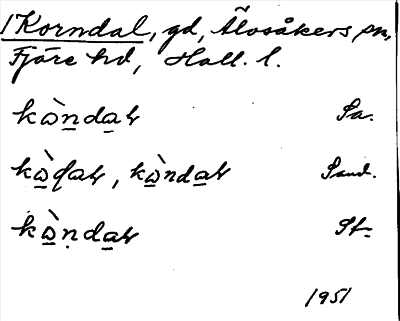 1 Korndal, gd, Älvsåkers sn,
Fjäre hd, Hall. l.
kò̲ṉda̲r Sa.
kò̲ɖar, kò̲nda̲r Sand.
kò̲ṇda̲r St-
1951